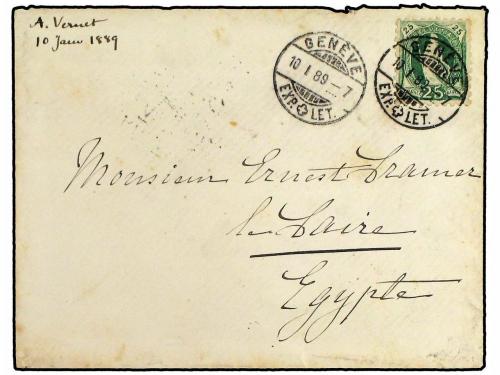 A. Vernet
10 Janv 1889
GENÈVE
10 I 89 — 7
EXP. LET.
25 25
GENÈVE
10 I 89 — 7
EXP. LET.
25
Monsieur Ernest Cramer
le Caire
Egypte